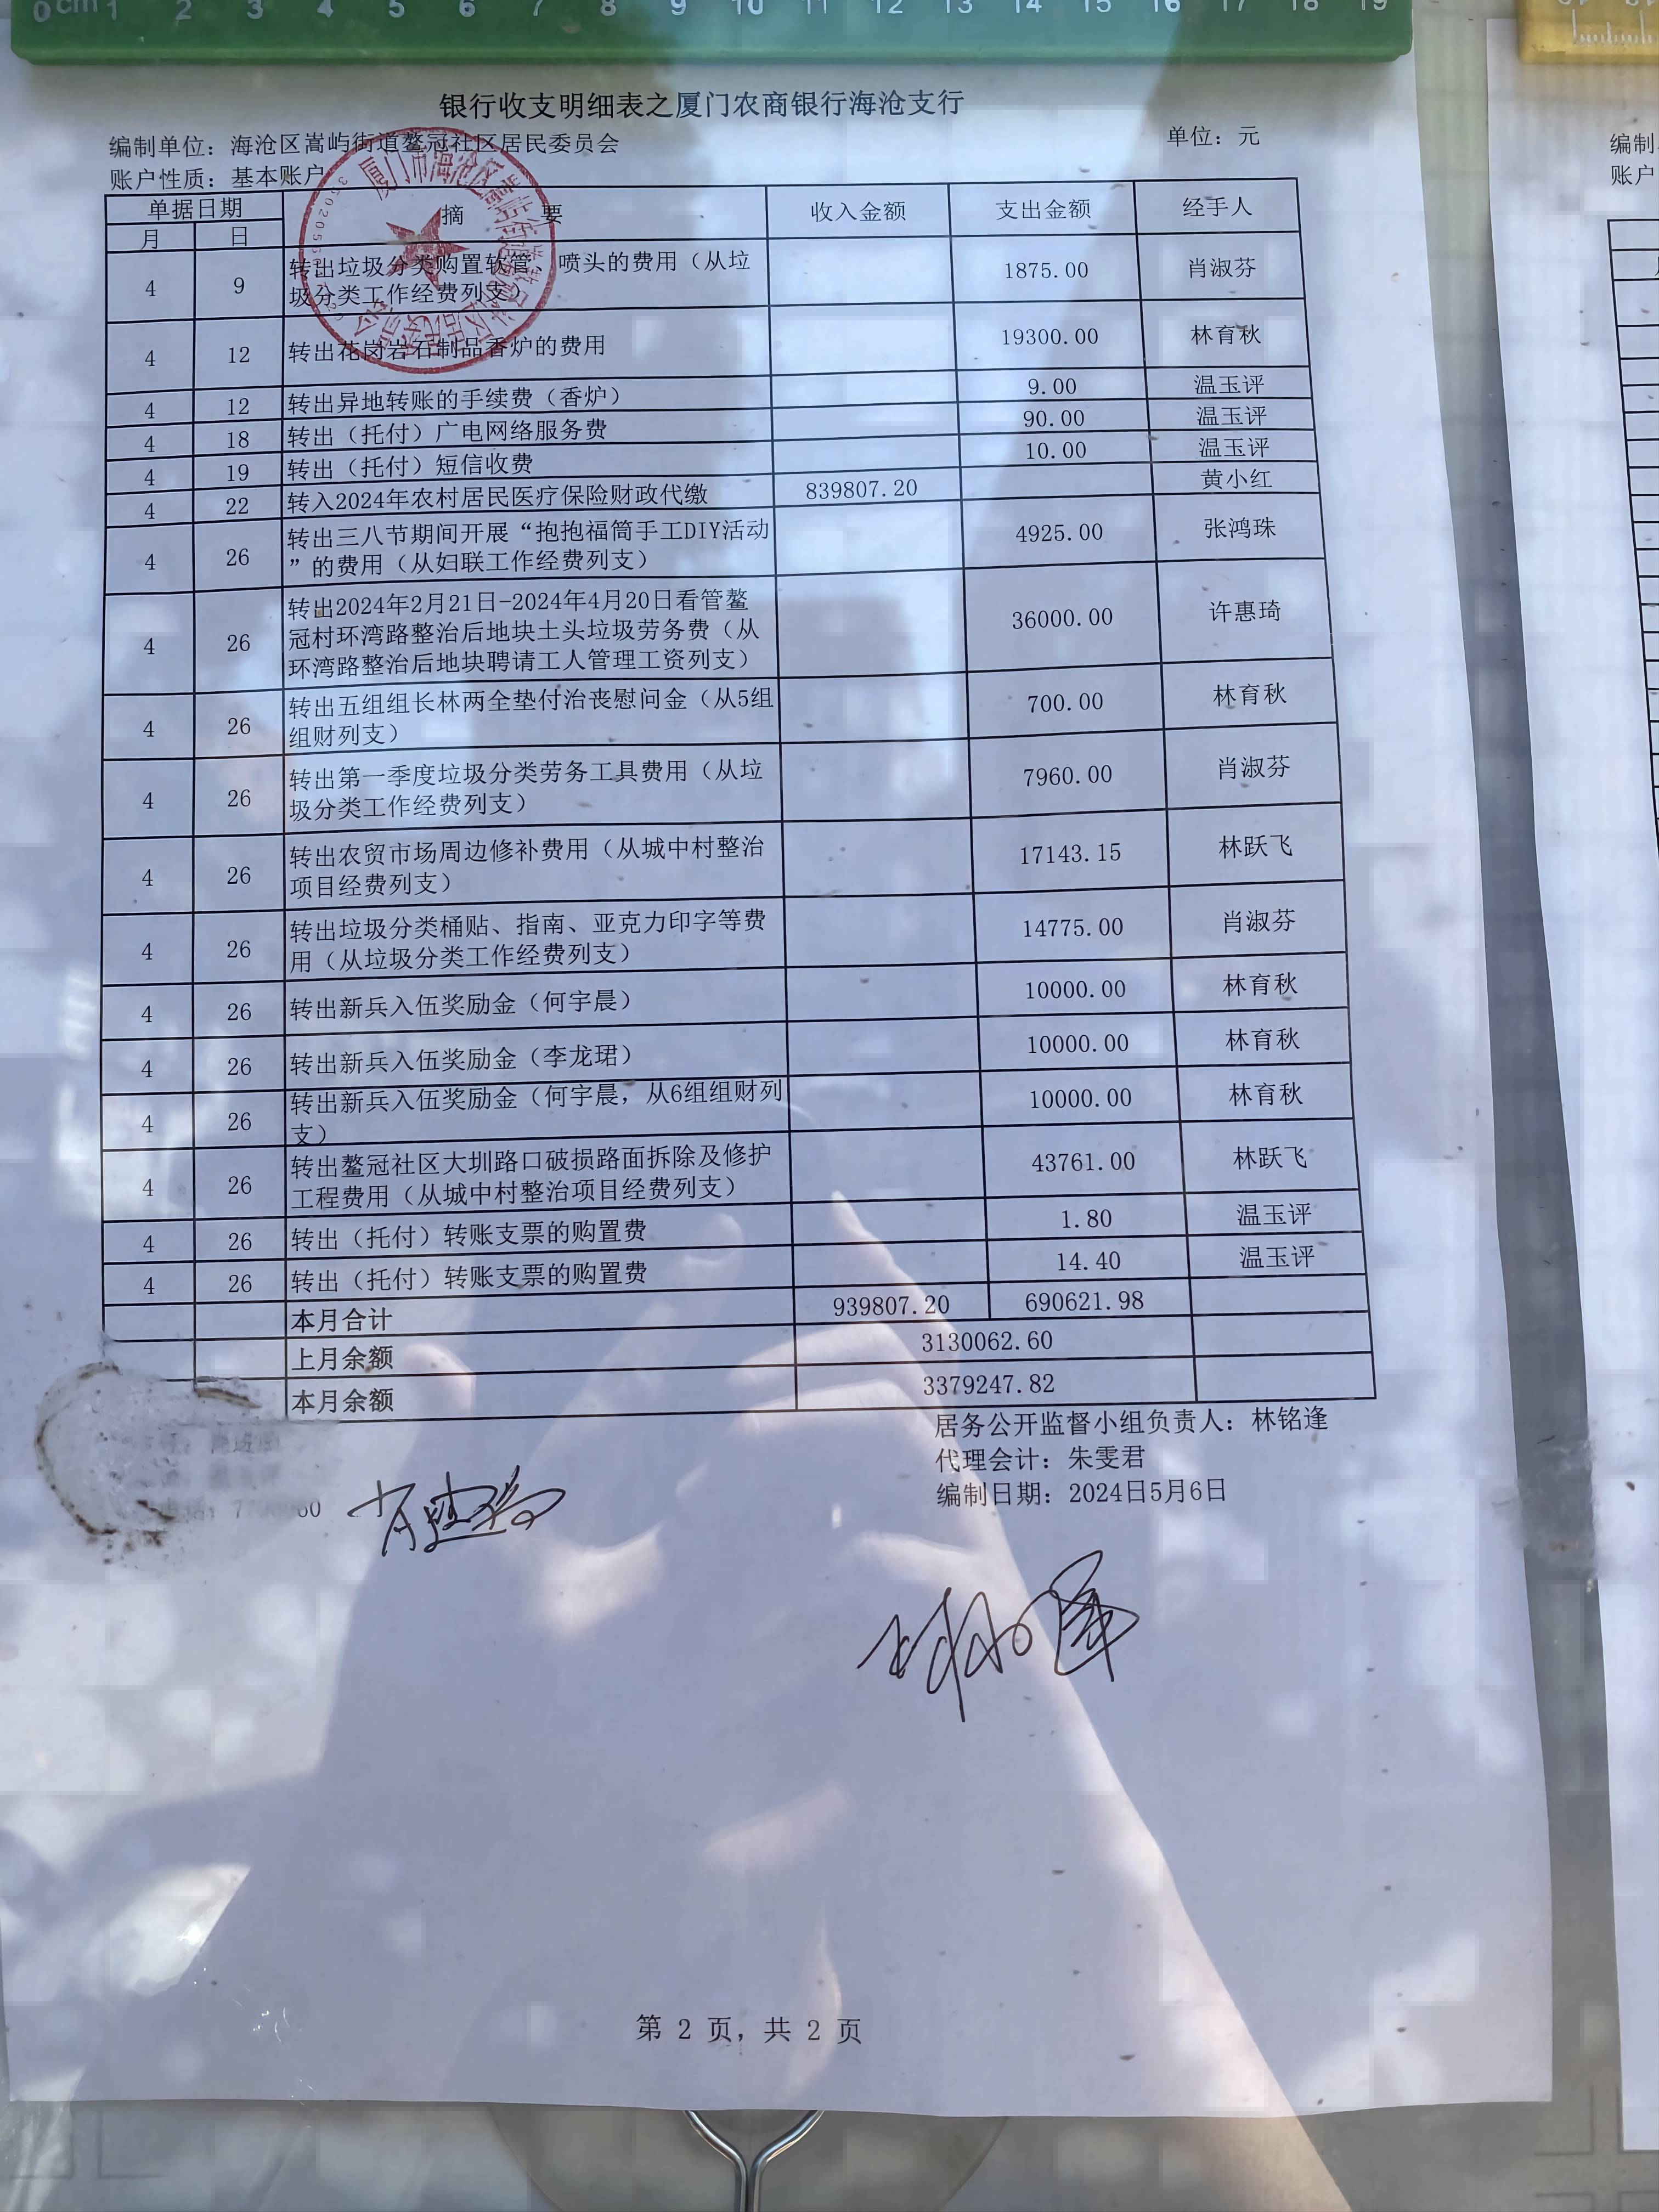 0cm 1 2 3 4 5 6 7 8 9 10 11 12 13 14 15 16 17 18 19
银行收支明细表之厦门农商银行海沧支行
编制单位：海沧区嵩屿街道鳌冠社区居民委员会 单位：元
账户性质：基本账户
单据日期 摘 要 收入金额 支出金额 经手人
月 日
4 9 转出垃圾分类购置软管、喷头的费用（从垃 1875.00 肖淑芬
圾分类工作经费列支）
4 12 转出花岗岩石制品香炉的费用 19300.00 林育秋
4 12 转出异地转账的手续费（香炉） 9.00 温玉评
4 18 转出（托付）广电网络服务费 90.00 温玉评
4 19 转出（托付）短信收费 10.00 温玉评
4 22 转入2024年农村居民医疗保险财政代缴 839807.20 黄小红
4 26 转出三八节期间开展“抱抱福筒手工DIY活动 4925.00 张鸿珠
”的费用（从妇联工作经费列支）
4 26 转出2024年2月21日-2024年4月20日看管鳌 36000.00 许惠琦
冠村环湾路整治后地块土头垃圾劳务费（从
环湾路整治后地块聘请工人管理工资列支）
4 26 转出五组组长林两全垫付治丧慰问金（从5组 700.00 林育秋
组财列支）
4 26 转出第一季度垃圾分类劳务工具费用（从垃 7960.00 肖淑芬
圾分类工作经费列支）
4 26 转出农贸市场周边修补费用（从城中村整治 17143.15 林跃飞
项目经费列支）
4 26 转出垃圾分类桶贴、指南、亚克力印字等费 14775.00 肖淑芬
用（从垃圾分类工作经费列支）
4 26 转出新兵入伍奖励金（何宇晨） 10000.00 林育秋
4 26 转出新兵入伍奖励金（李龙珺） 10000.00 林育秋
4 26 转出新兵入伍奖励金（何宇晨，从6组组财列 10000.00 林育秋
支）
4 26 转出鳌冠社区大圳路口破损路面拆除及修护 43761.00 林跃飞
工程费用（从城中村整治项目经费列支）
4 26 转出（托付）转账支票的购置费 1.80 温玉评
4 26 转出（托付）转账支票的购置费 14.40 温玉评
本月合计 939807.20 690621.98
上月余额 3130062.60
本月余额 3379247.82
居务公开监督小组负责人：林铭逢
代理会计：朱雯君
编制日期：2024日5月6日
第 2 页，共 2 页
编制
账户